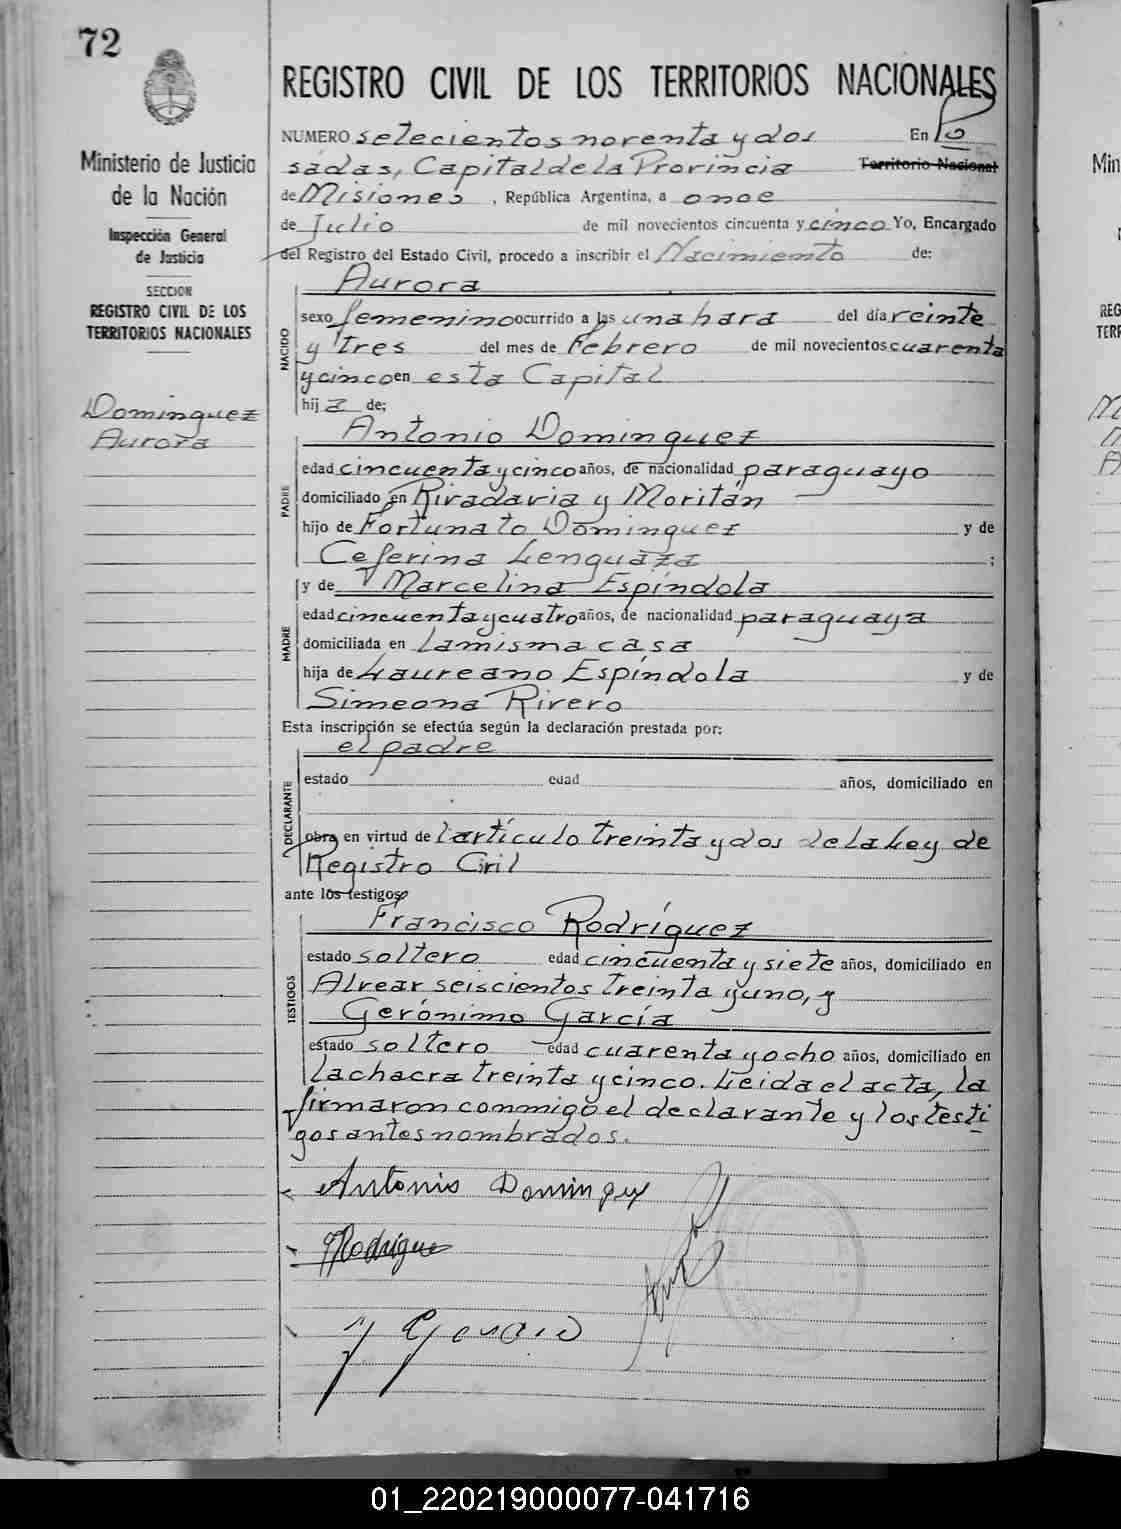 72
REGISTRO CIVIL DE LOS TERRITORIOS NACIONALES
Ministerio de Justicia
de la Nación
Inspección General
de Justicia
SECCION
REGISTRO CIVIL DE LOS
TERRITORIOS NACIONALES
Dominguez
Aurora
NUMERO setecientos noventa y dos En Po
sadas, Capital de la Provincia Territorio Nacional
de Misiones, República Argentina, a once
de Julio de mil novecientos cincuenta y cinco Yo, Encargado
del Registro del Estado Civil, procedo a inscribir el Nacimiento de:
NACIDO
Aurora
sexo femenino ocurrido a las una hora del día veinte
y tres del mes de Febrero de mil novecientos cuarenta
y cinco en esta Capital
hija de;
PADRE
Antonio Dominguez
edad cincuenta y cinco años, de nacionalidad paraguayo
domiciliado en Rivadavia y Moritán
hijo de Fortunato Dominguez y de
Ceferina Lenguaza ;
y de Marcelina Espíndola
MADRE
edad cincuenta y cuatro años, de nacionalidad paraguaya
domiciliada en la misma casa
hija de Laureano Espíndola y de
Simeona Rivero
Esta inscripción se efectúa según la declaración prestada por:
DECLARANTE
el padre
estado edad años, domiciliado en
obra en virtud del artículo treinta y dos de la Ley de
Registro Civil
ante los testigos
TESTIGOS
Francisco Rodríguez
estado soltero edad cincuenta y siete años, domiciliado en
Alvear seiscientos treinta y uno, y
Gerónimo García
estado soltero edad cuarenta y ocho años, domiciliado en
la chacra treinta y cinco. Leida el acta, la
firmaron conmmigo el declarante y los testi
gos antes nombrados.
Antonio Dominguez
Rodrigue
01_220219000077-041716